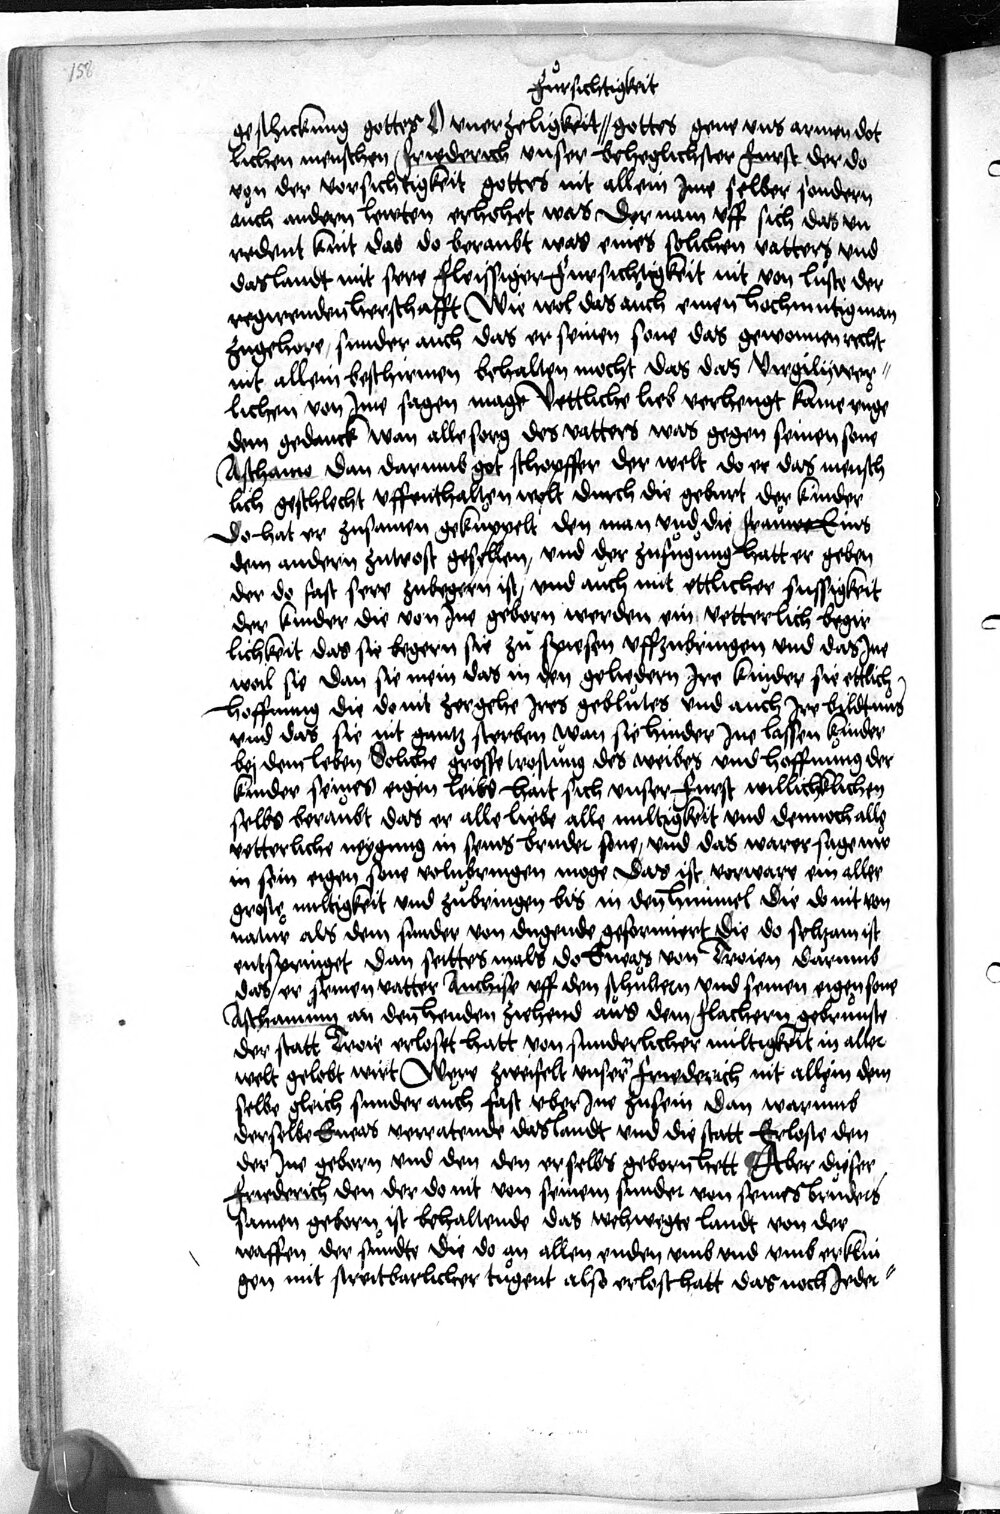 158
Fürsichtigkeit
geschickung gottes O vnerzeligkeit // gottes gene vns armen dot
lichen menschen Friederich vnser beheglichster Furst der do
von der vorsichtigkeit gottes nit allein Ime selber sondern
auch andern lewten erhohet was Der nam vff sich das vn
redent kint das do beraubt was eines solichen vatters vnd
das landt mit sere fleissiger Fursichtigkeit nit von luste der
regirenden herschafft Wie wol das auch einen hochmutig man
zugehore, sunder auch das er seinen sone das gewonnen recht
nit allein beschirmen behalten mocht Das das Virgilij wer"
lichen von Ime sagen mage Vettliche lieb verhengt kame ruge
dem gedanck wan alle sorg des vatters was gegen seinen sone
Aschanio Dan darumb got schopffer der welt do er das mensch
lich geschlecht vffenthalten wolt durch die geburt der kinder
Do hat er zusamen gekuppelt den man vnd die frauwe Eins
dem andern zutrost gesellen, vnd der zufugung hatt er geben
der do fast sere zubegern ist, vnd auch mit ettlicher sussigkeit
der kinder die von Ine geborn werden ein vetterlich begir
lichkeit das sie begern sie zu spiesen vffzubringen vnd das Ine
wol sie Dan sie mein das in den geliedern Ire kinder sie ettlich
hoffnung die do nit zergehe Ires geblutes vnd auch Ire bildtnus
vnd das sie nit gantz sterben wan sie hinder Ine lassen kinder
bej dem leben Soliche grosse trostung des weibes vnd hoffnung der
kinder seines eigen leibs hatt sich vnser Furst willichklichen
selbs beraubt das er alle liebe alle miltigkeit vnd dennoch alle
vetterliche neygung in seins bruder sone, vnd das warer sage nie
in sein eigen sone volnbringen moge Das ist vorware ein aller
groste miltigkeit vnd zubringen bis in den himmel Die do nit von
natur als dem sunder von dugende geformiert die do seltzam ist
entspringet Dan seittes mals do Eneas von Troien darumb
das er seinen vatter Anchise vff den schultern vnd seinen eigen sone
Aschanium an den henden ziehend aus dem flachern gebrunste
der statt Troie erloset hatt von sunderlicher miltigkeit in aller
welt gelobt wirt Were zweifelt vnser Friederich nit allein dem
selbe gleich sunder auch fast vber Ine zusein Dan warumb
derselbe Eneas verratende das landt vnd die statt Erloste den
der Ine geborn vnd den den er selbs geborn hett Aber dieser
Friederich den der do nit von seinem sunder von seines bruders
samen geborn ist behaltende das wehwegte landt von der
waffen der sundte die do an allen enden vmb vnd vmb erklin
gen mit streitbarlicher tugent also erlost hatt das noch Ieder"